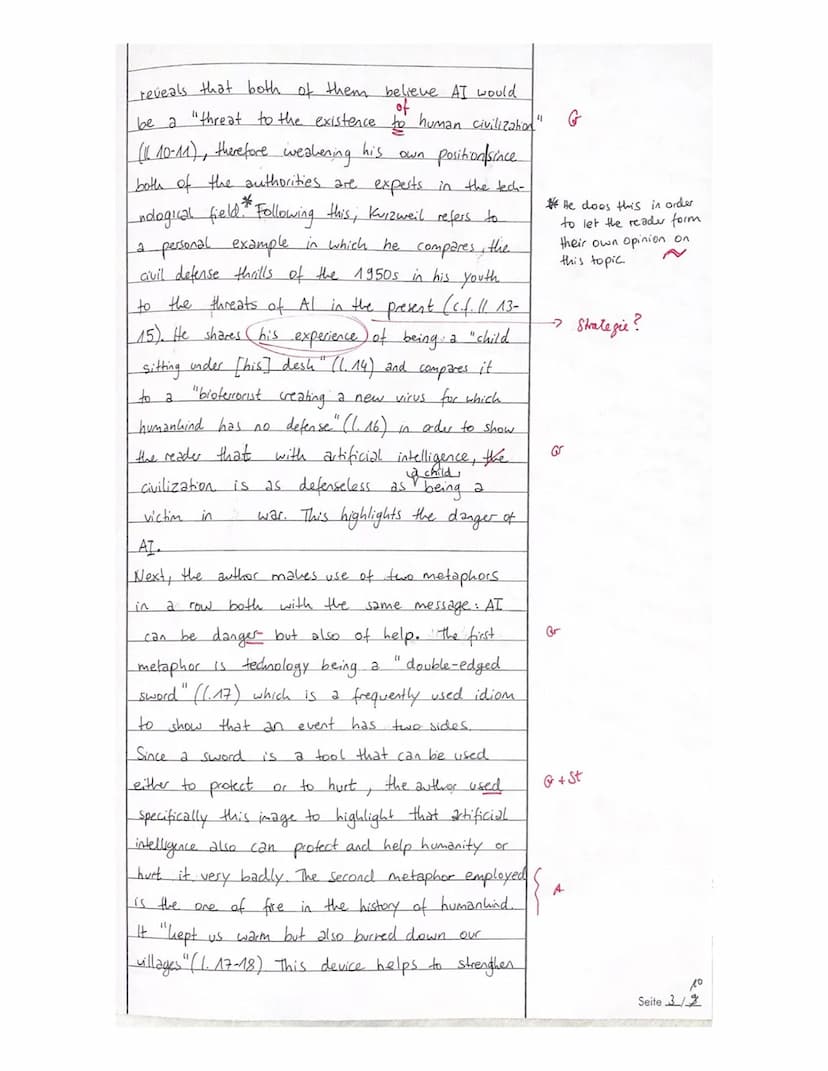 reveals that both of them believe AI would
of
be a "threat to the existence to human civilization" G
(ll. 10-11), therefore weakening his own position/since
both of the authorities are experts in the tech-
nological field.* Following this, Kurzweil refers to
* He does this in order
to let the reader form
their own opinion on
this topic.
a personal example in which he compares the
civil defense thrills of the 1950s in his youth
to the threats of AI in the present (c.f. ll 13-
15). He shares his experience of being a "child
→ Strategie?
sitting under [his] desk" (l. 14) and compares it
to a "bioterrorist creating a new virus for which
humankind has no defense" (l. 16) in order to show
the reader that with artificial intelligence, the Gr
a child
civilization is as defenseless as being a
victim in war. This highlights the danger of
AI.
Next, the author makes use of two metaphors
in a row both with the same message: AI
can be danger but also of help. The first Gr
metaphor is technology being a "double-edged
sword" (l. 17) which is a frequently used idiom
to show that an event has two sides.
Since a sword is a tool that can be used
either to protect or to hurt, the author used Gr + St
specifically this image to highlight that artificial
intelligence also can protect and help humanity or
hurt it very badly. The second metaphor employed
is the one of fire in the history of humankind. A
It "kept us warm but also burned down our
villages" (l. 17-18) This device helps to strenghen
10
Seite 3/9